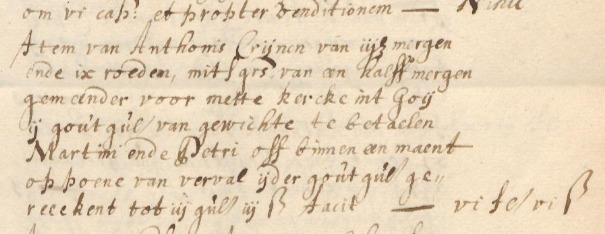 om vi cap: et propter venditionem — Nihil
Item van Anthonis Crijnen van iiij mergen
ende ix roeden, mitsgrs. van een halff mergen
gemeender voor mette kercke int Goij
ij gout gul/ van gewichte te betaelen
Martini ende Petri off binnen een maent
op poene van verval ijder gout gul/ ge„
reeckent tot iij gul/ iij ß facit — vi ſe/ vi ß